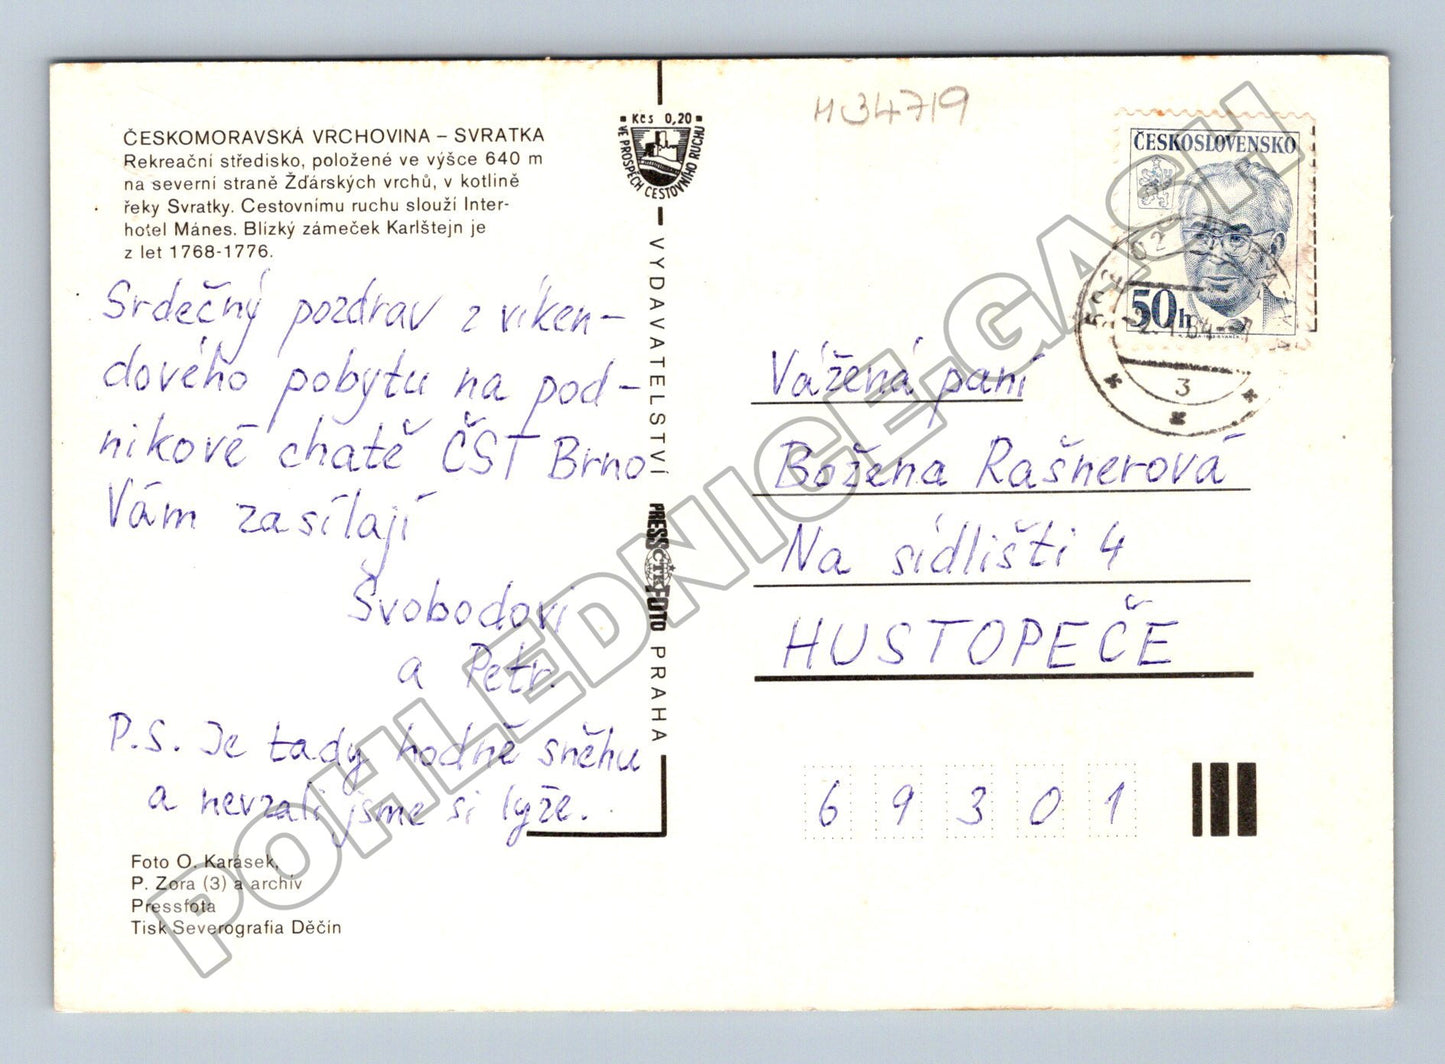 M 34719
ČESKOMORAVSKÁ VRCHOVINA – SVRATKA
Rekreační středisko, položené ve výšce 640 m
na severní straně Žďárských vrchů, v kotlině
řeky Svratky. Cestovnímu ruchu slouží Inter-
hotel Mánes. Blízký zámeček Karlštejn je
z let 1768-1776.
Srdečný pozdrav z víken-
dového pobytu na pod-
nikové chatě ČST Brno
Vám zasílají
Svobodovi
a Petr.
P.S. Je tady hodně sněhu
a nevzali jsme si lyže.
Foto O. Karásek,
P. Zora (3) a archiv
Pressfota
Tisk Severografia Děčín
Kčs 0,20
VE PROSPĚCH CESTOVNÍHO RUCHU
VYDAVATELSTVÍ
PRESS ČTK FOTO
PRAHA
ČESKOSLOVENSKO
50h
592 02
3
Vážená paní
Božena Rašnerová
Na sídlišti 4
HUSTOPEČE
6 9 3 0 1
POHLEDNICE-GASH